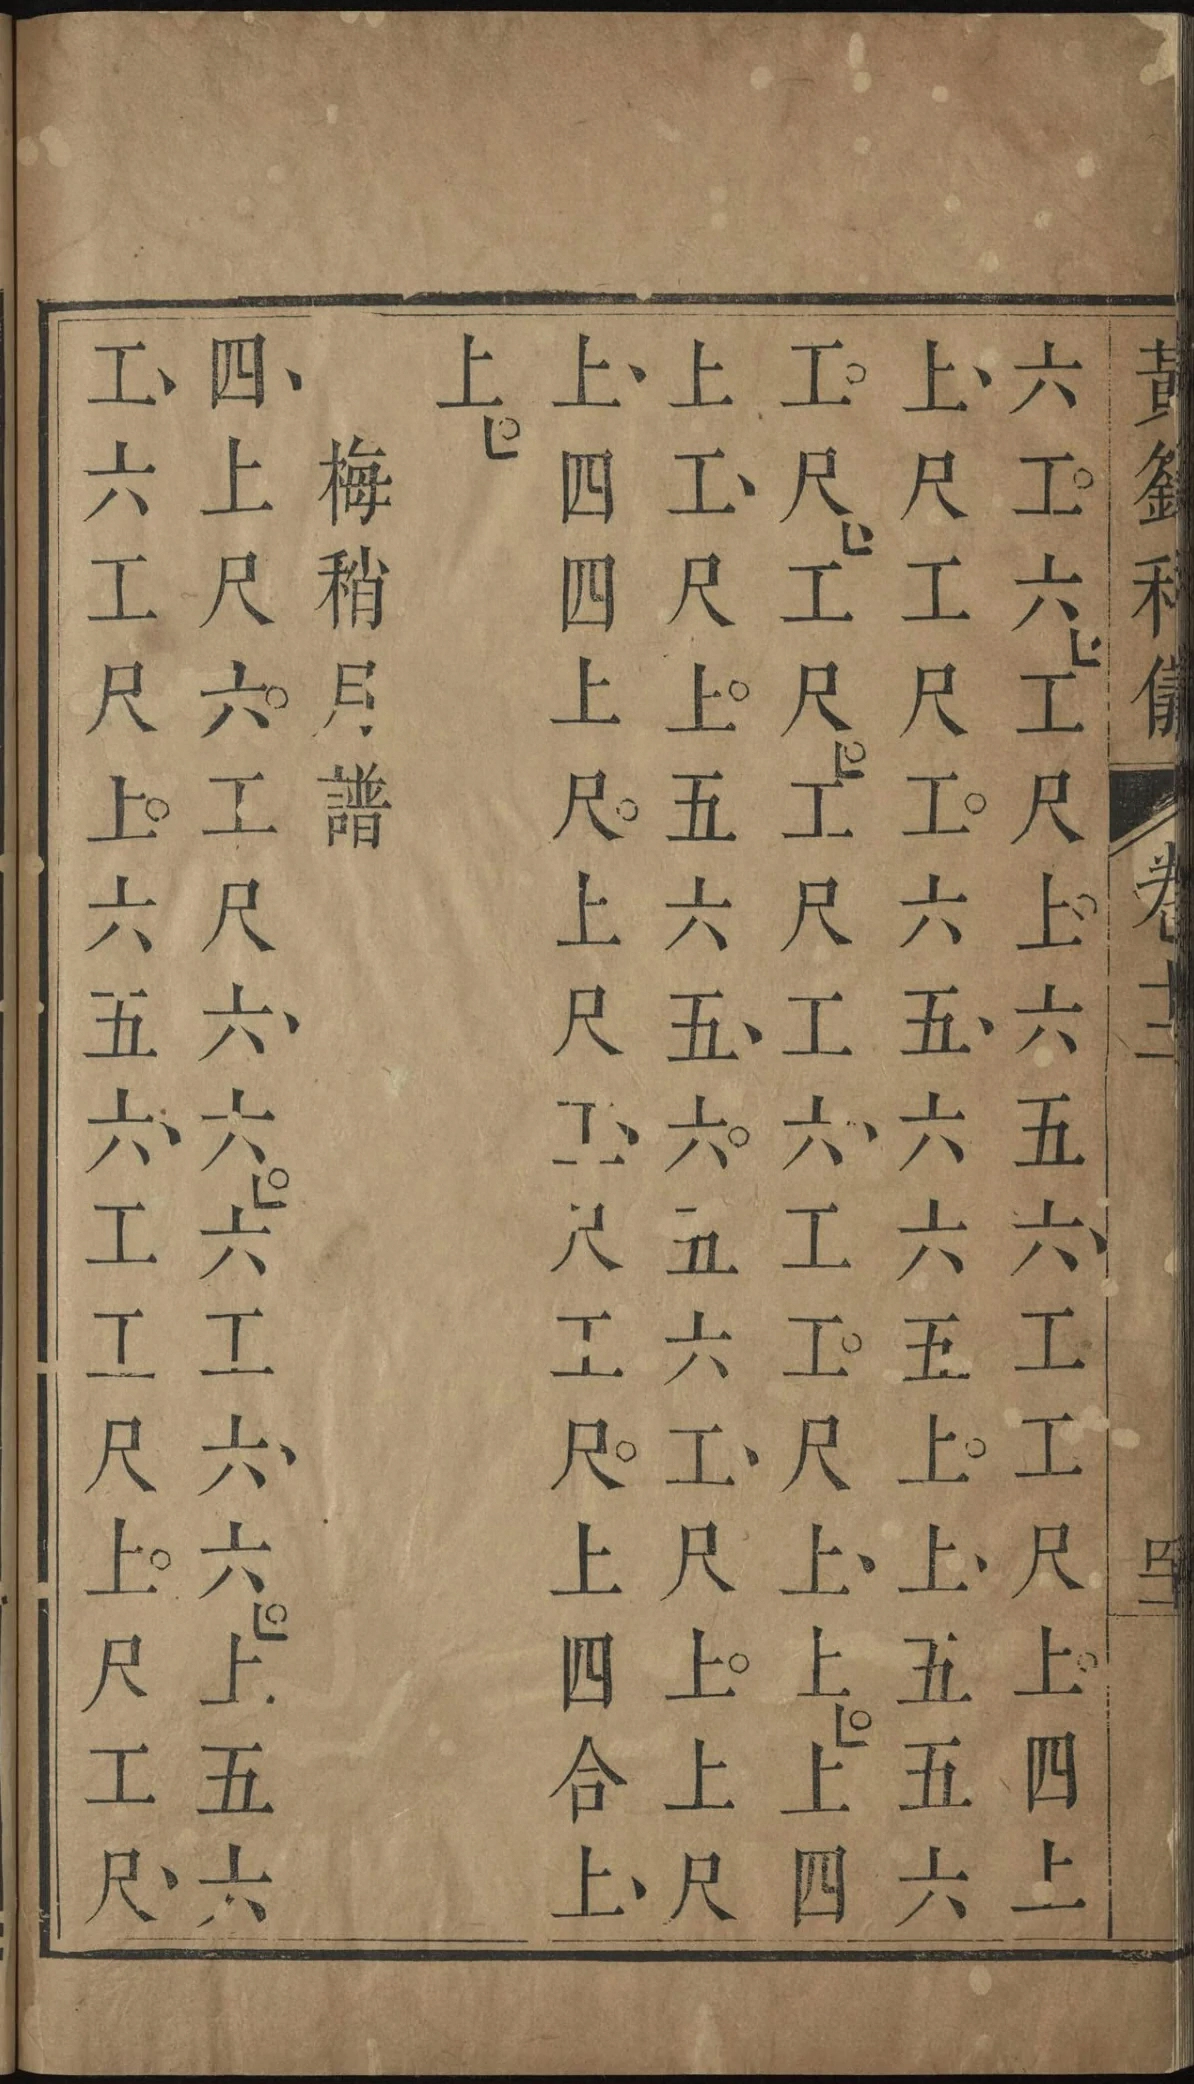 六工六工尺上六五六工工尺上四上
上尺工尺工六五六六五上上五五六
工尺工尺工尺工六工工尺上上上四
上工尺上五六五六五六工尺上上尺
上四四上尺上尺工尺工尺上四合上
上
梅稍月譜
四上尺六工尺六六六工六六上五六
工六工尺上六五六工工尺上尺工尺